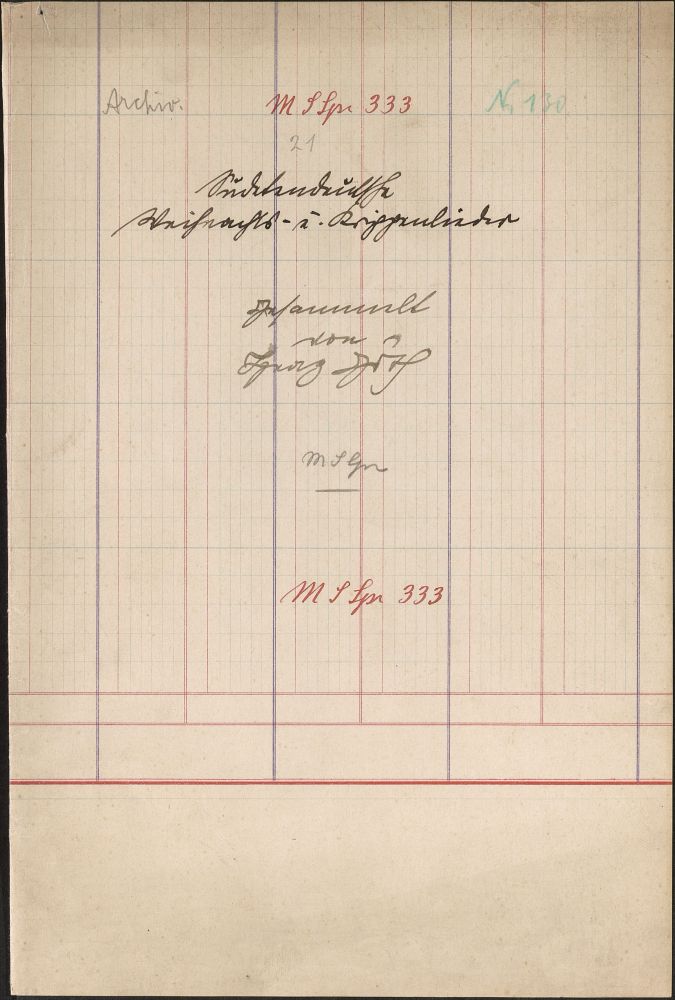 Archiv.
M S Spr 333
Nr 130
21
Sudetendeutsche
Weihnachts- u. Krippenlieder
Gesammelt
von
Götz
M S Spr
M S Spr 333